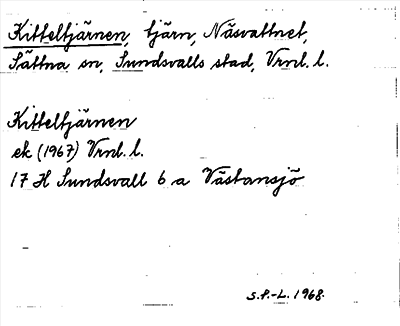 Kitteltjärnen, tjärn, Näsvattnet,
Sättna sn, Sundsvalls stad, Vrnl. l.
Kitteltjärnen
ek (1967) Vrnl. l.
17 H Sundsvall 6 a Västansjö
S.P.-L. 1968.